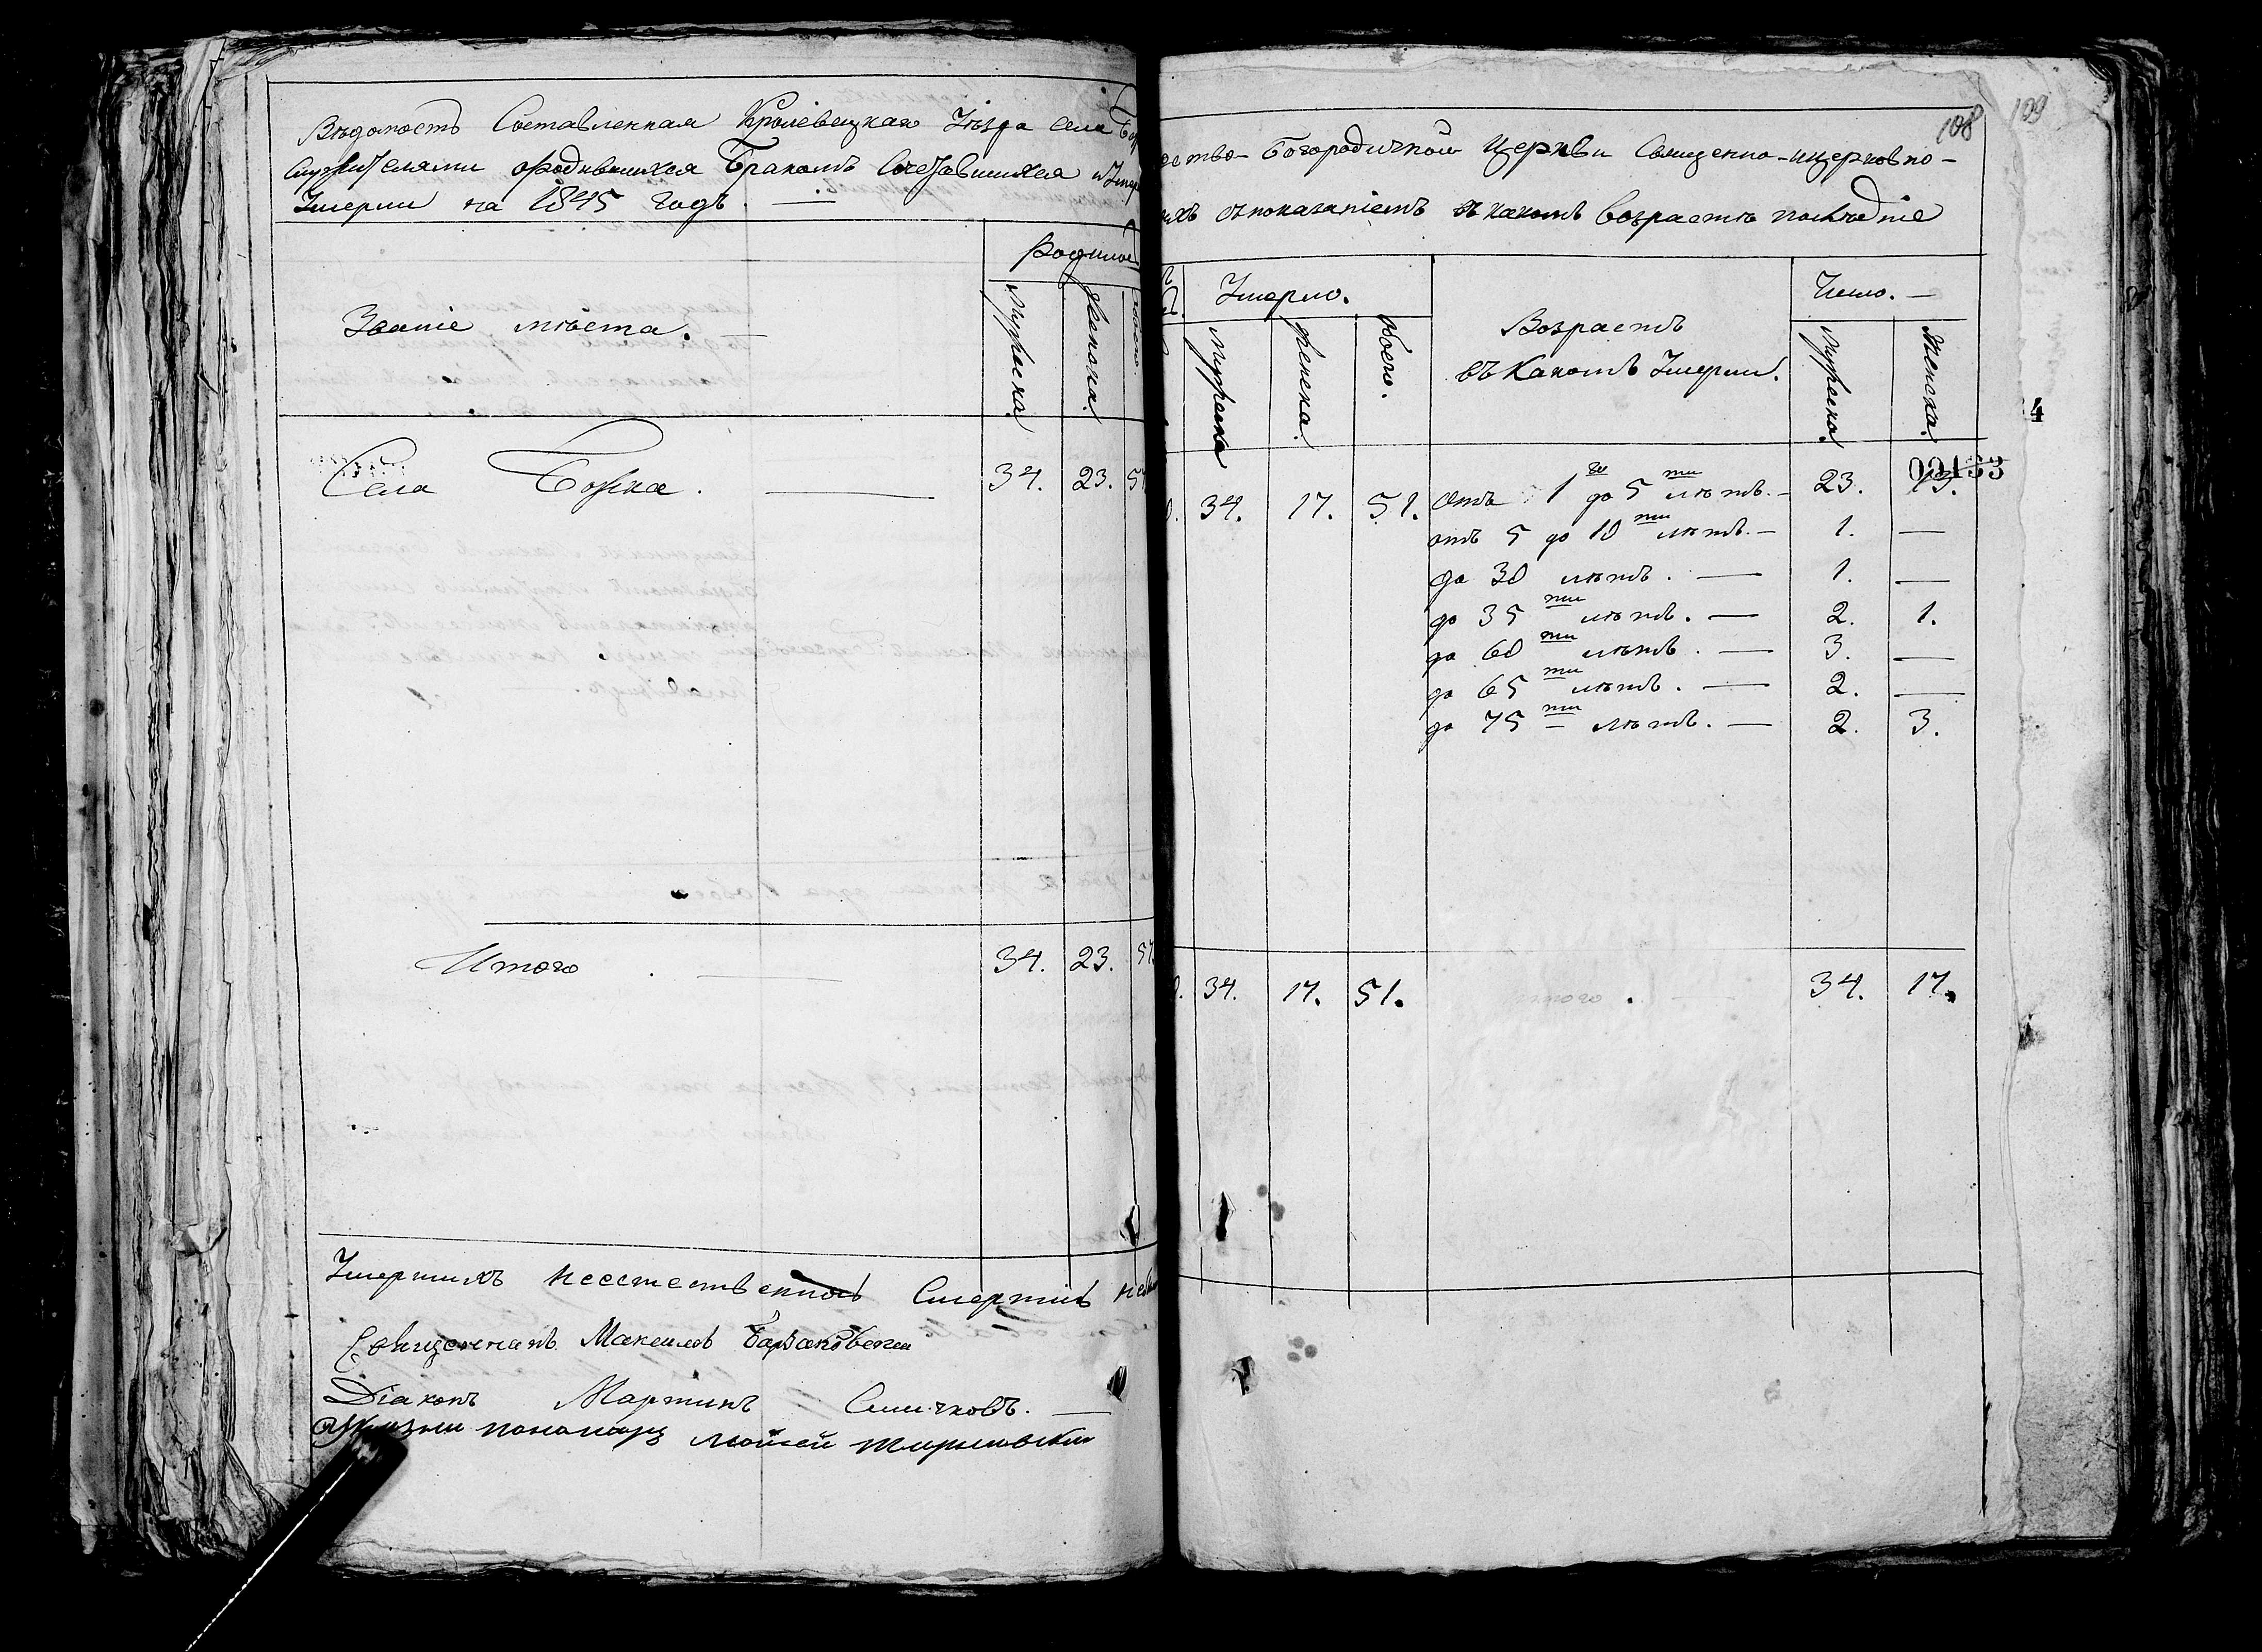 Вѣдомость Составленная Кролевецкаго Уѣзда села
служителями о родившихся Бракомъ Сочетавшихся и Умер
Умерли на 1845 годъ.
Родилось
Званіе мѣста.
Мужска
Женска
Села Божка. 34. 23. 57
Итого 34. 23. 57.
Умершихъ неестественною Смертію не
Священникъ Максимъ
Діаконъ Мартинъ
пономарь Моисей
108
109
ство-Богородичной Церкви Священно-ицерковно-
ихъ съпоказаніемъ въ какомъ возрастѣ послѣдніе
Умерло.
Возрастъ
въ Какомъ Умерли.
Число.
Мужска
Женска.
Обоего.
Мужска
Женска.
4
00163
34. 17. 51. Отъ 1 го до 5 ти лѣтъ. 23. 13.
отъ 5 до 10 ти лѣтъ. 1. —
до 30 лѣтъ. 1. —
до 35 ти лѣтъ. 2. 1.
до 60 ти лѣтъ. 3. —
до 65 ти лѣтъ. 2. —
до 75 ти лѣтъ. 2. 3.
34. 17. 51. итого. 34. 17.